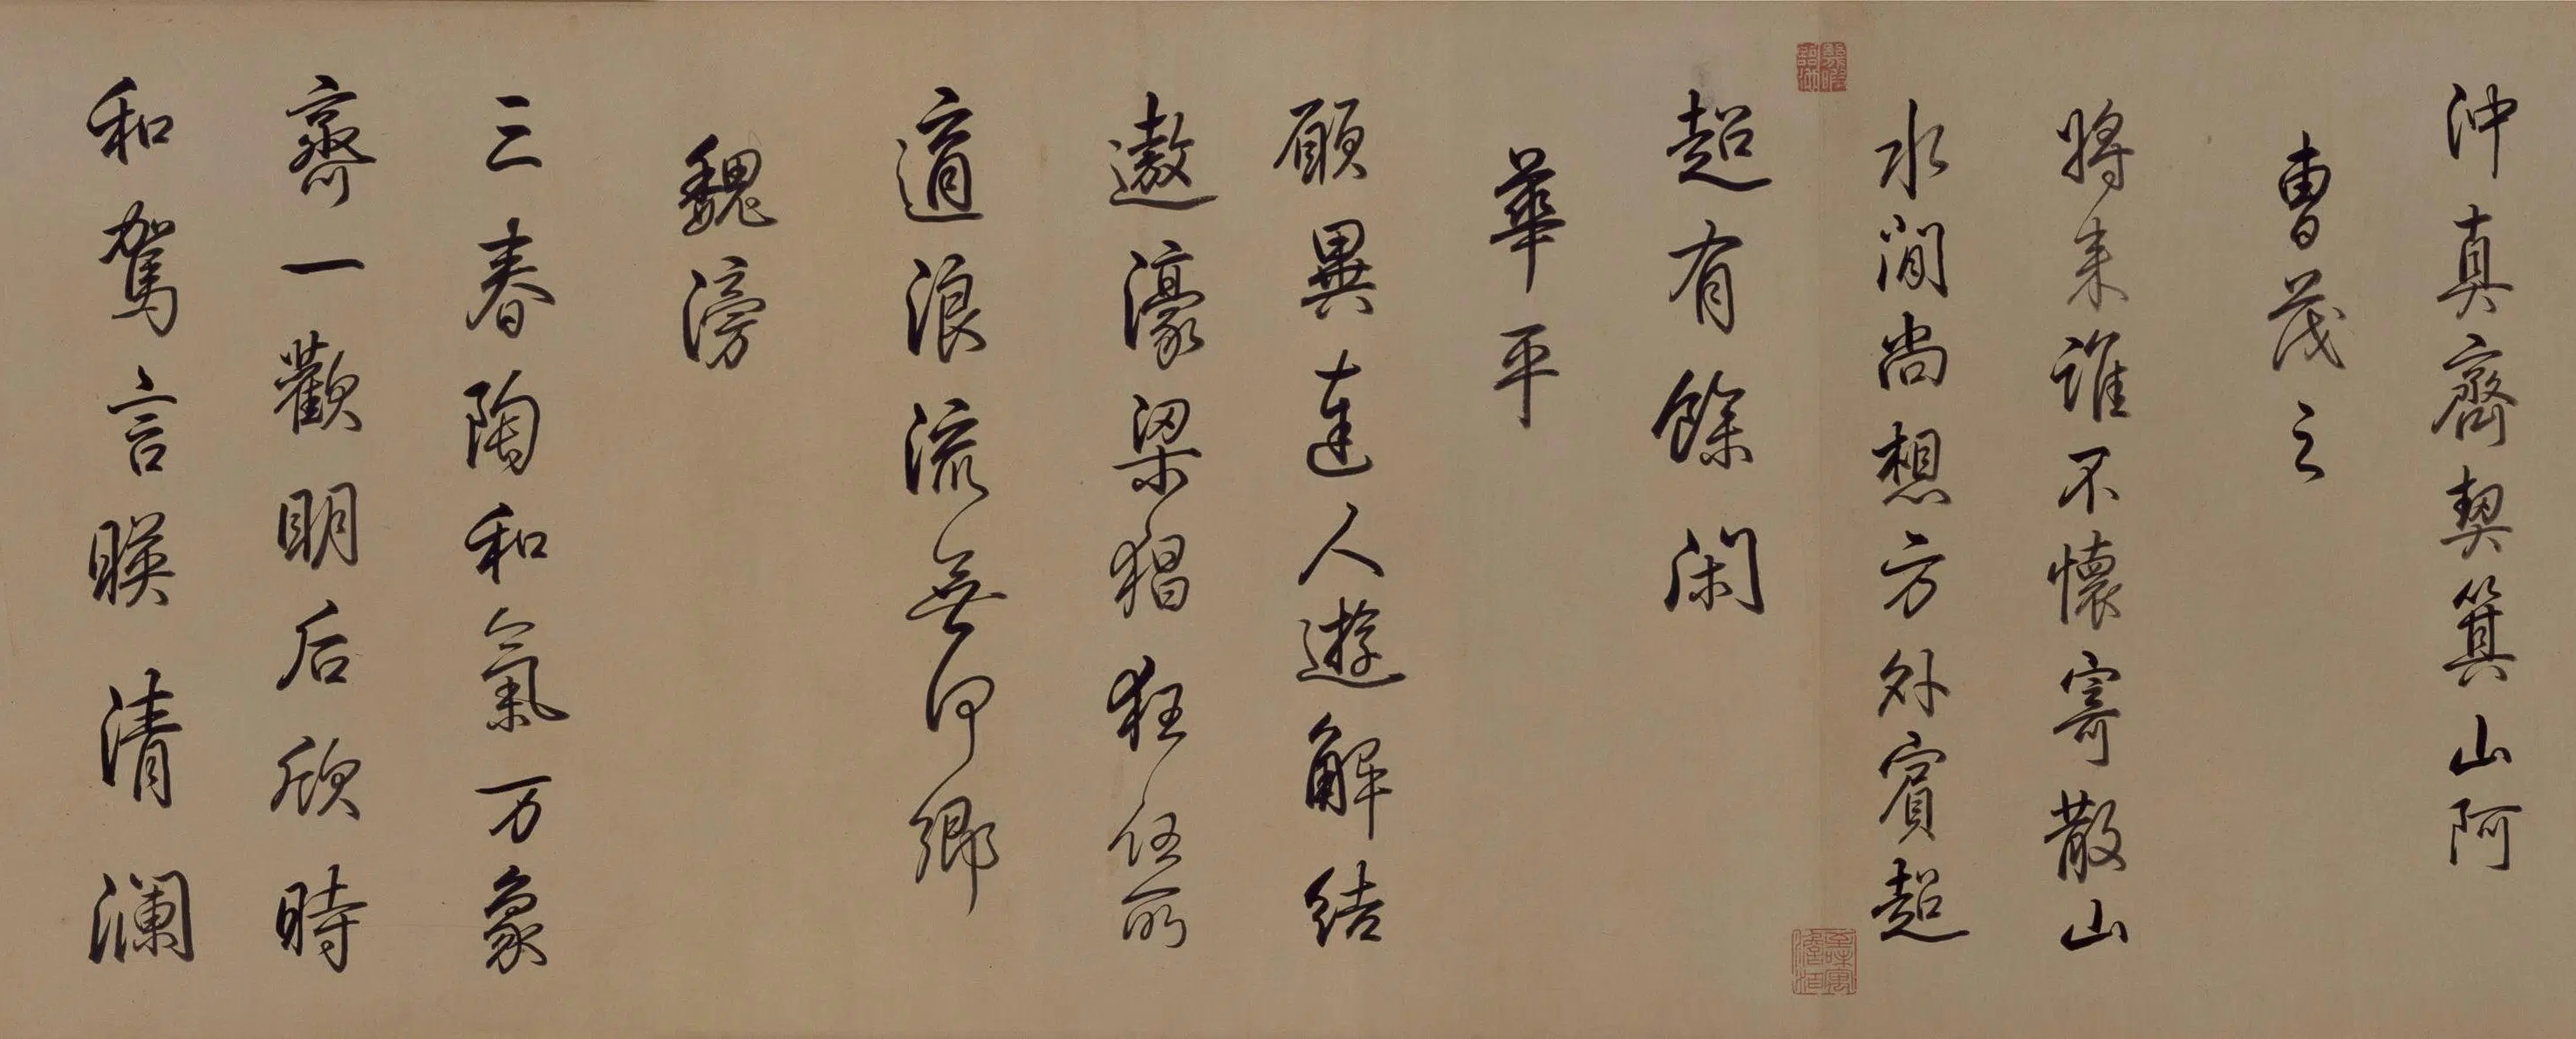 沖真齋契箕山阿
曹茂之
將来誰不懷寄散山
水間尚想方外賓超
超有餘閑
華平
願異達人遊解結
遨濠梁猖狂任所
適浪流無何鄉
魏滂
三春陶和氣万象
齊一歡明后欣時
和駕言暎清瀾